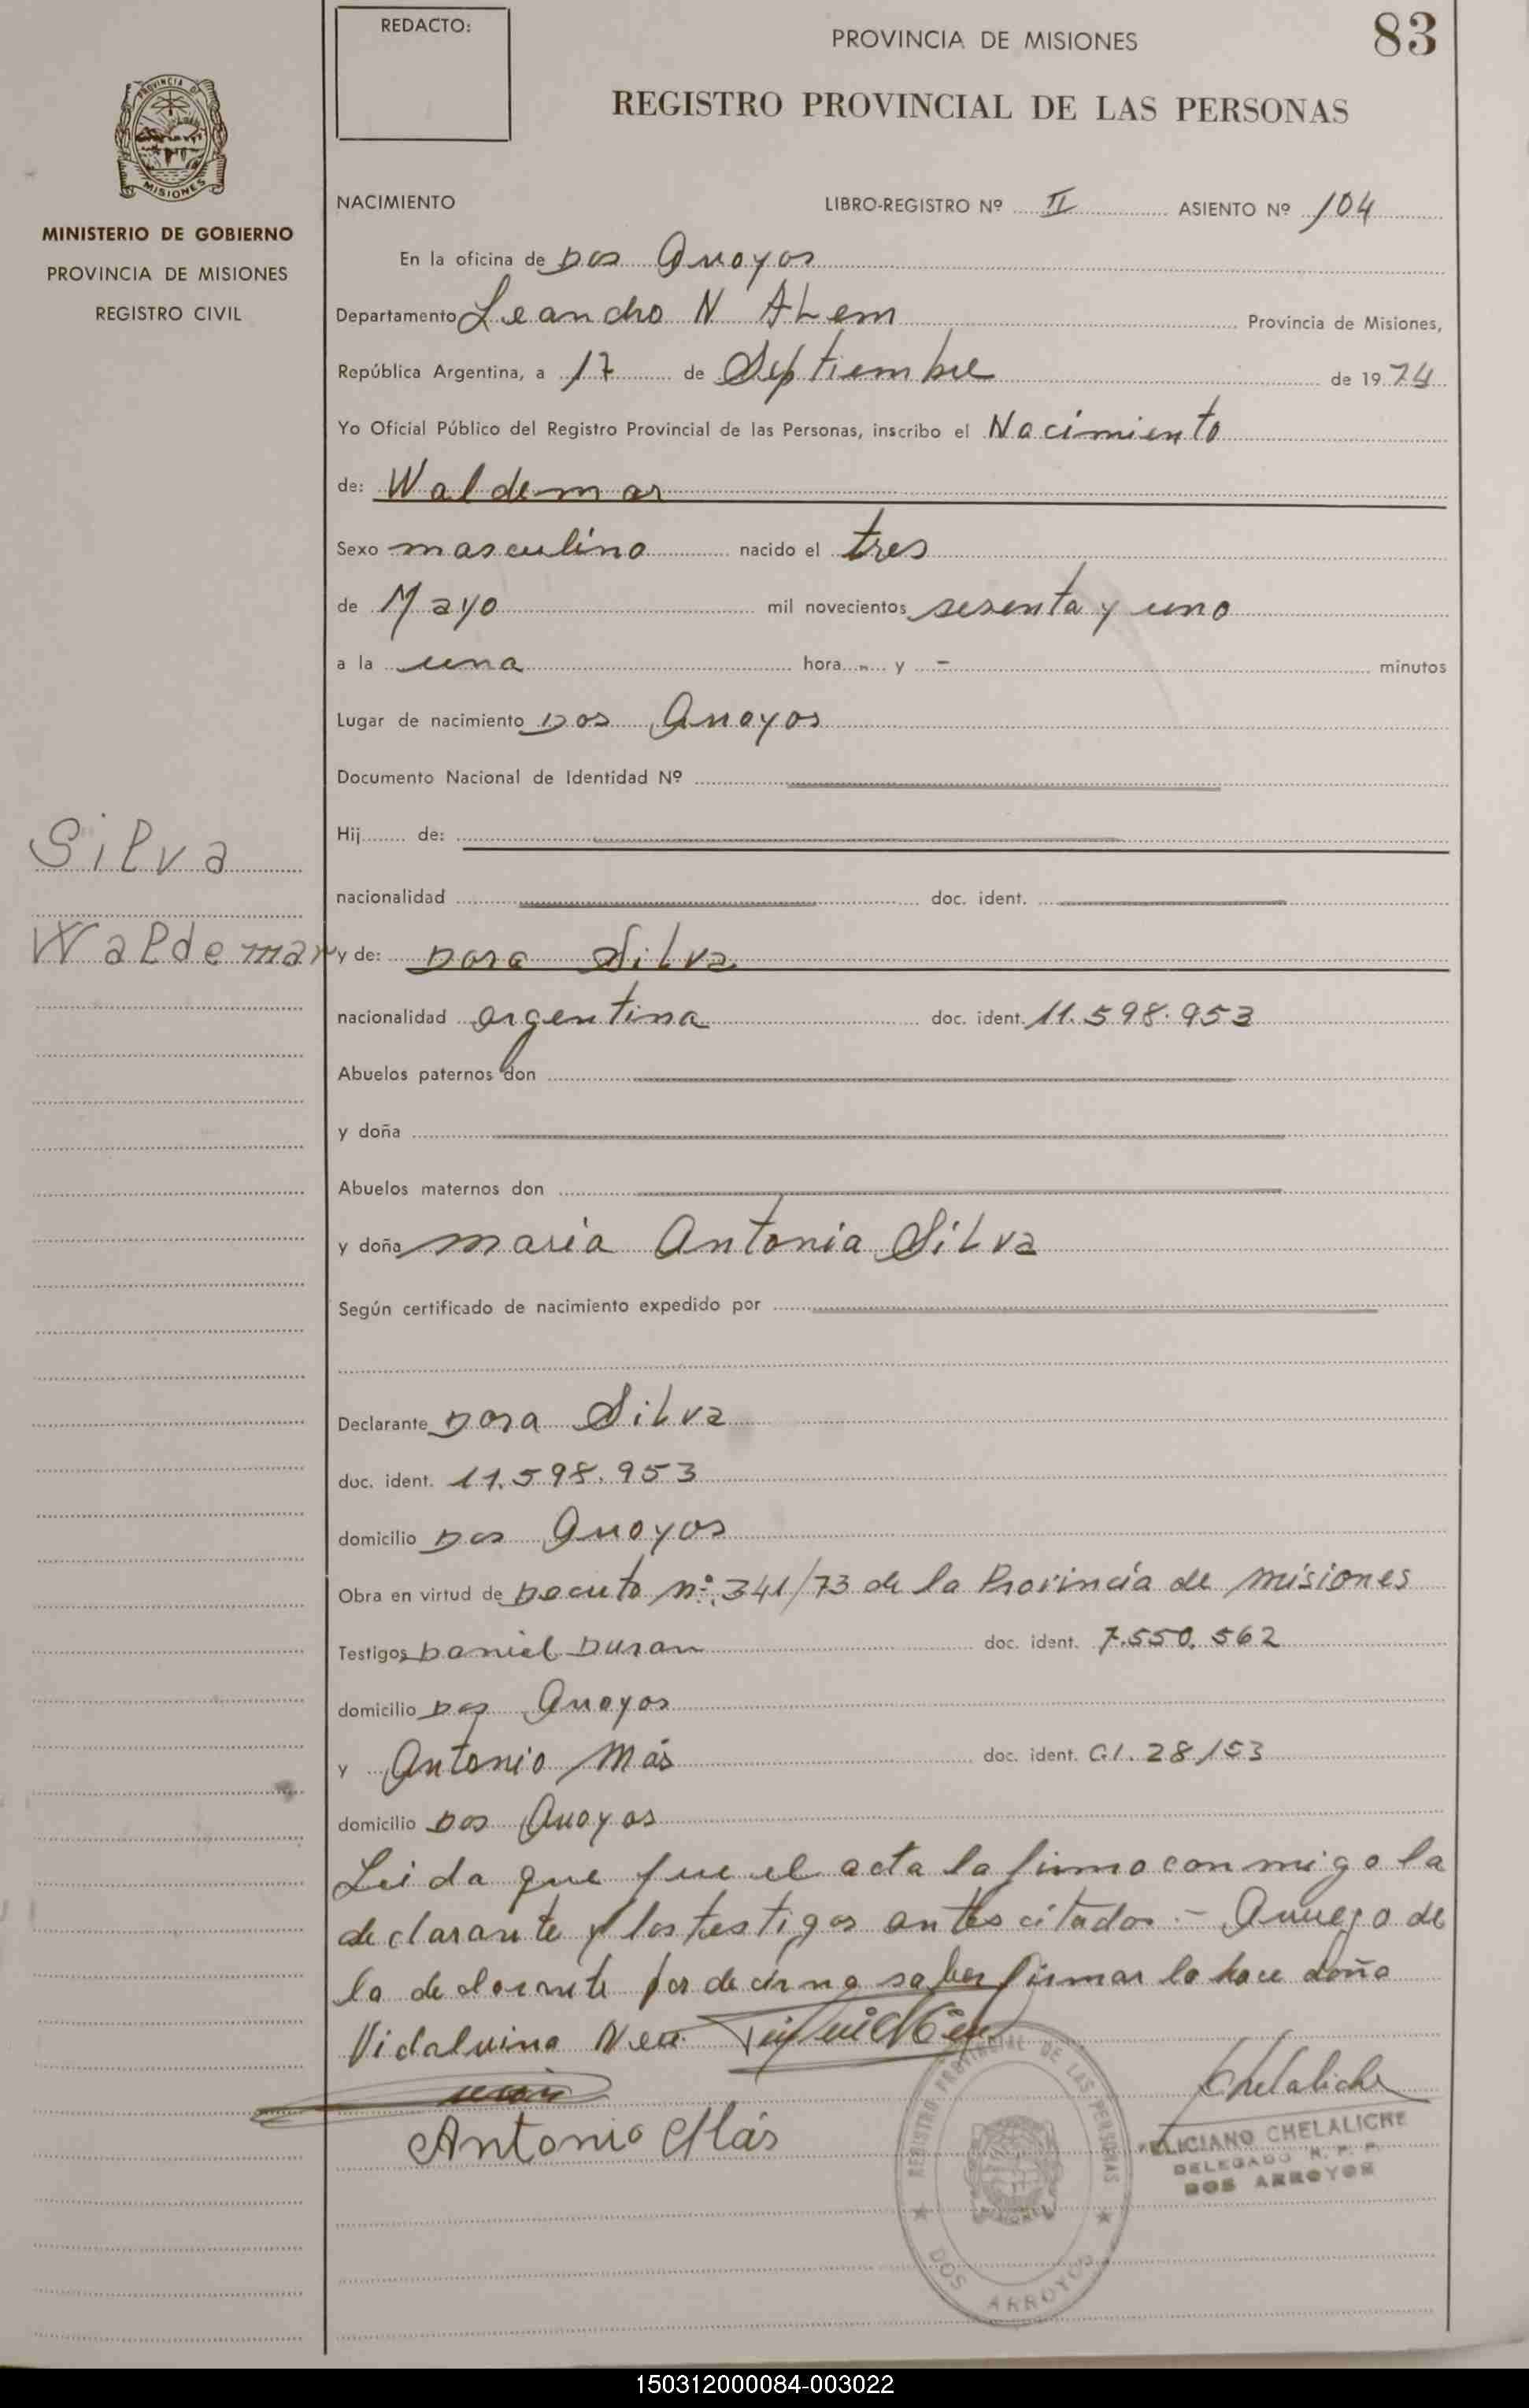 REDACTO:
PROVINCIA DE MISIONES
83
REGISTRO PROVINCIAL DE LAS PERSONAS
PROVINCIA
MISIONES
MINISTERIO DE GOBIERNO
PROVINCIA DE MISIONES
REGISTRO CIVIL
NACIMIENTO LIBRO-REGISTRO Nº II ASIENTO Nº 104
En la oficina de Dos Arroyos
Departamento Leandro N Alem Provincia de Misiones,
República Argentina, a 17 de Septiembre de 1974
Yo Oficial Público del Registro Provincial de las Personas, inscribo el Nacimiento
de: Waldemar
Sexo masculino nacido el tres
de Mayo mil novecientos sesenta y uno
a la una hora y - minutos
Lugar de nacimiento Dos Arroyos
Documento Nacional de Identidad Nº
Hij de:
nacionalidad doc. ident.
Silva
Waldemar
y de: Dora Silva
nacionalidad argentina doc. ident. 11.598.953
Abuelos paternos don
y doña
Abuelos maternos don
y doña maria Antonia Silva
Según certificado de nacimiento expedido por
Declarante Dora Silva
doc. ident. 11.598.953
domicilio Dos Arroyos
Obra en virtud de Decreto nº 341/73 de la Provincia de Misiones
Testigos Daniel Duran doc. ident. 7.550.562
domicilio Dos Arroyos
y Antonio Más doc. ident. C.I. 28153
domicilio Dos Arroyos
Leida que fue el acta la firmo conmigo la
declarante y los testigos antes citados.- Arruego de
la declarante por decir no saber firmar lo hace doña
Vidalvina
Antonio Más
Chelaliche
FELICIANO CHELALICHE
DELEGADO R. P. P.
DOS ARROYOS
REGISTRO PROVINCIAL DE LAS PERSONAS
MISIONES
DOS ARROYOS
150312000084-003022